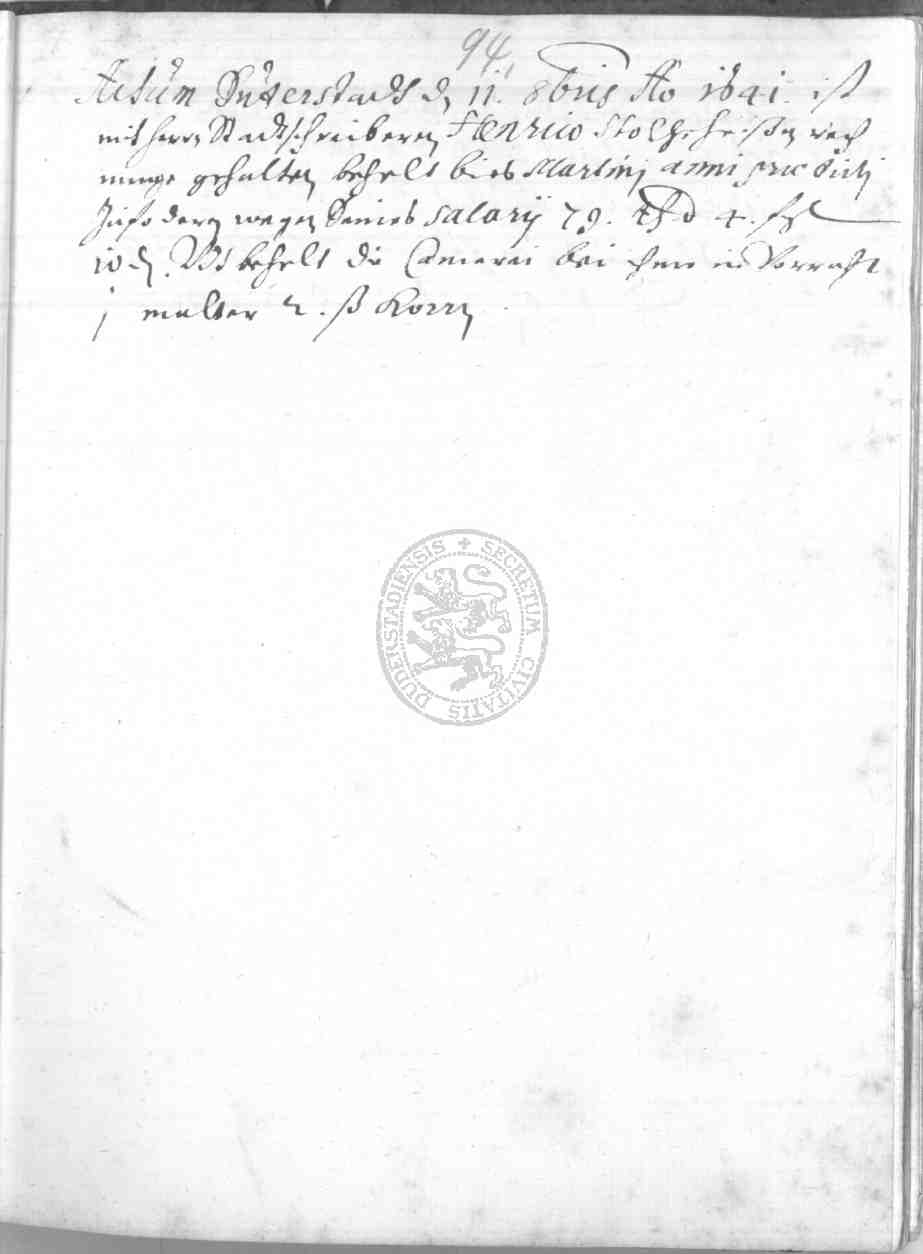 94
Actum Duderstadt d. 11. 8bris Ao 1641. ist
mit herrn Stadtschreiberen Henrico Stolz rech
nunge gehalten behelt bies Martinj anni
zufoderen wegen seines salarij 79. 4.
10 d. behelt die Cämerei bei ihme in Vorraht
j malter 2. ß Korn
DUDERSTADIENSIS + SECRETUM CIVITATIS